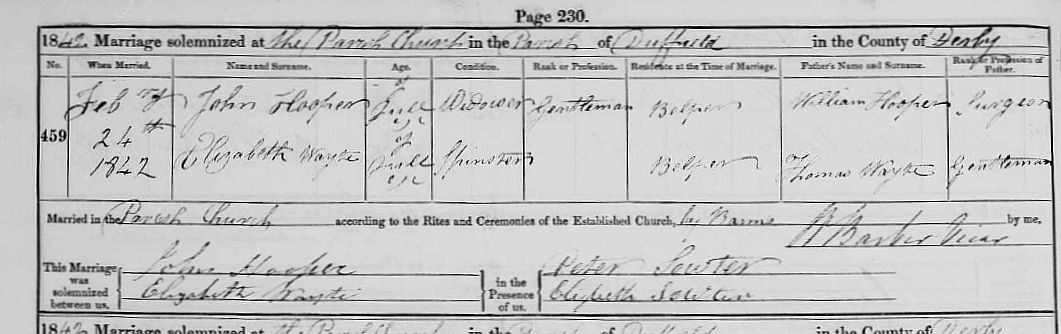 Page 230.
1842 Marriage solemnized at the Parish Church in the Parish of Duffield in the County of Derby
No. When Married. Name and Surname. Age. Condition. Rank or Profession. Residence at the Time of Marriage. Father's Name and Surname. Rank or Profession of Father.
459 Feb ry 24th 1842 John Hooper of Full age Widower Gentleman Belper William Hooper Surgeon
Elizabeth Wayte of Full age Spinster Belper Thomas Wayte Gentleman
Married in the Parish Church according to the Rites and Ceremonies of the Established Church, by Banns by me,
Barber Vicar
This Marriage was solemnized between us, John Hooper Elizabeth Wayte in the Presence of us, Peter Sowter Elizabeth Sowter
1842 Marriage solemnized at the Parish Church in the Parish of Duffield in the County of Derby